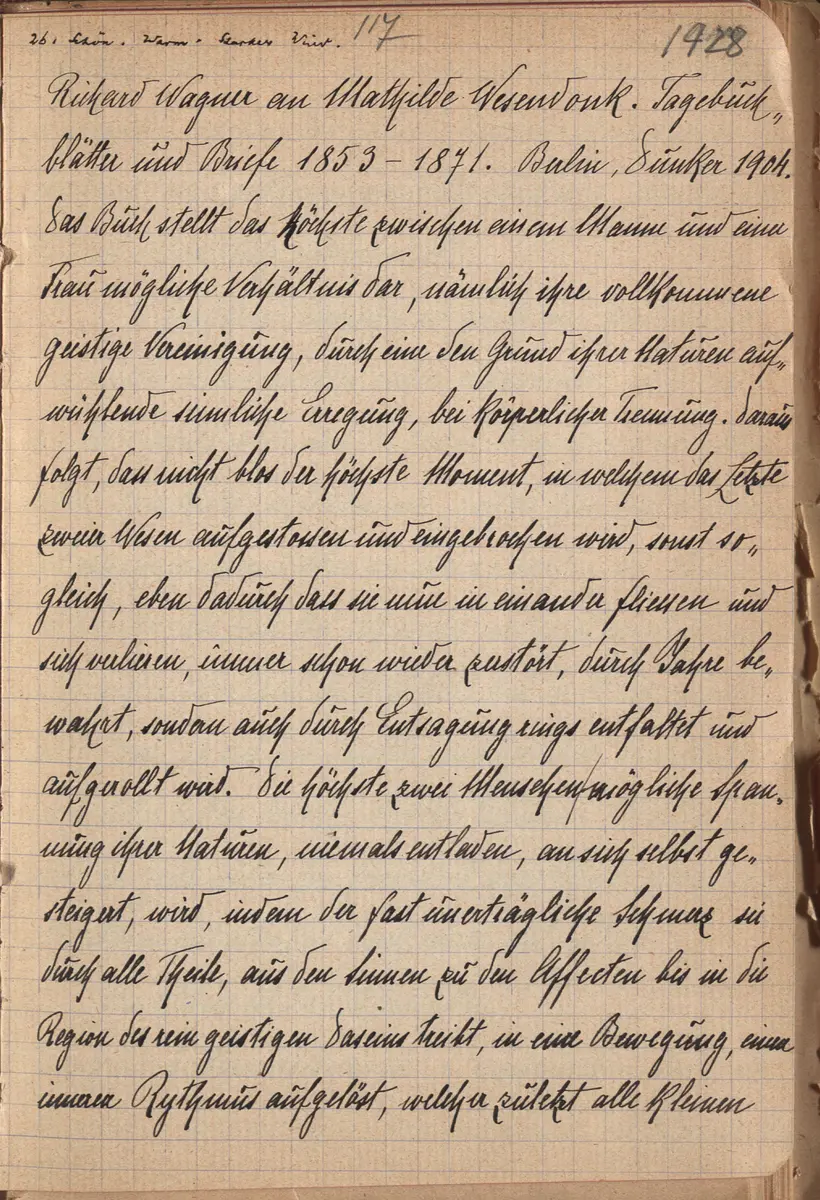 26. Schön. Warm. Starker Wind. 117
1928
Richard Wagner an Mathilde Wesendonk. Tagebuch„
blätter und Briefe 1853 – 1871. Berlin, Dunker 1904.
Das Buch stellt das höchste zwischen einem Manne und einer
Frau mögliche Verhältnis dar, nämlich ihre vollkommene
geistige Vereinigung, durch eine den Grund ihrer Naturen auf„
wühlende sinnliche Erregung, bei körperlicher Trennung. Daraus
folgt, dass nicht blos der höchste Moment, in welchem das Letzte
zweier Wesen aufgestossen und eingebrochen wird, sonst so„
gleich, eben dadurch dass sie nun in einander fliessen und
sich verlieren, immer schon wieder zerstört, durch Jahre be„
wahrt, sondern auch durch Entsagung rings entfaltet und
aufgerollt wird. Die höchste zwei Menschen/mögliche Span„
nung ihrer Naturen, niemals entladen, an sich selbst ge„
steigert, wird, indem der fast unerträgliche Schmerz sie
durch alle Theile, aus den Sinnen zu den Affecten bis in die
Region des rein geistigen Daseins treibt, in eine Bewegung, einen
inneren Rythmus aufgelöst, welcher zuletzt alle kleinen